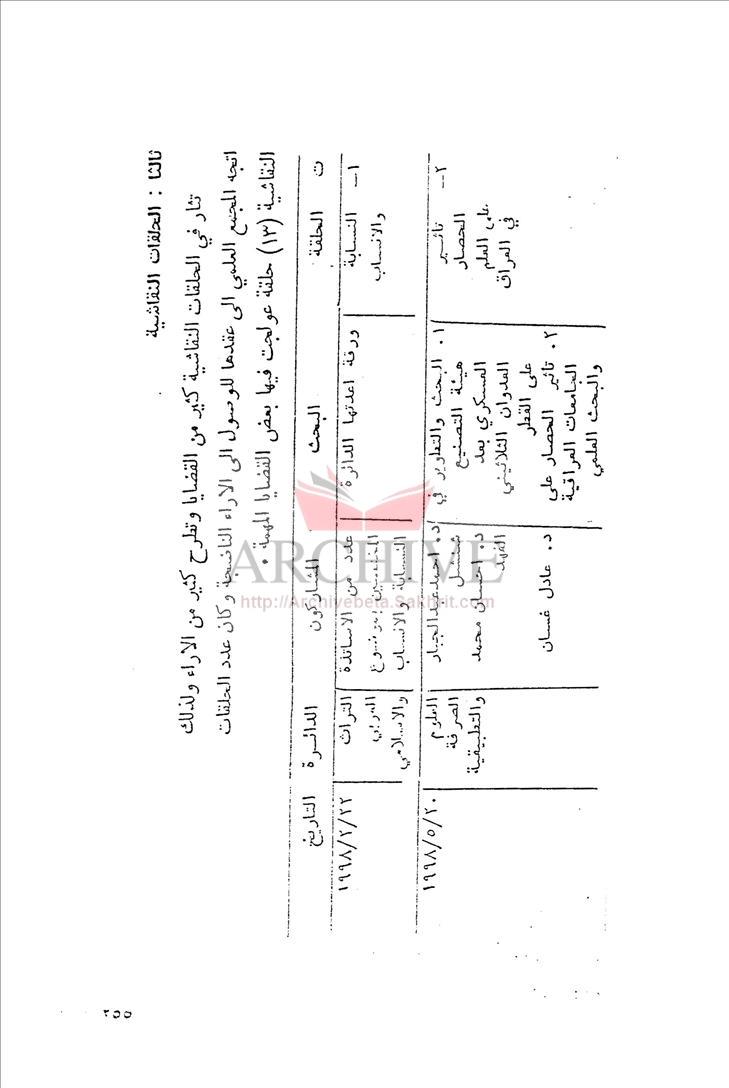 ثالثا : الحلقات النقاشية
تثار في الحلقات النقاشية كثير من القضايا وتطرح كثير من الاراء ولذلك
اتجه المجمع العلمي الى عقدها للوصول الى الاراء الناضجة وكان عدد الحلقات
النقاشية (١٣) حلقة عولجت فيها بعض القضايا المهمة .
ت الحلقة البحث المشاركون الدائرة التاريخ
١ــ النسابة ورقة اعدتها الدائرة عدد من الاساتذة التراث ١٩٩٨/٢/٢٢
والانساب العربي
النسابة والانساب والاسلامي
٢ــ تاثير ١. البحث والتطوير في د. احمد عبدالجبار العلوم ١٩٩٨/٥/٢٠
الحصار هيئة التصنيع شنشل الصرفة
على العلم العسكري بعد د. احسان محمد والتطبيقية
في العراق العدوان الثلاثيني الفهد
على القطر
٢. تاثير الحصار على د. عادل غسان
الجامعات العراقية
والبحث العلمي
٢٥٥
ARCHIVE
http://Archivebeta.Sakhrit.com